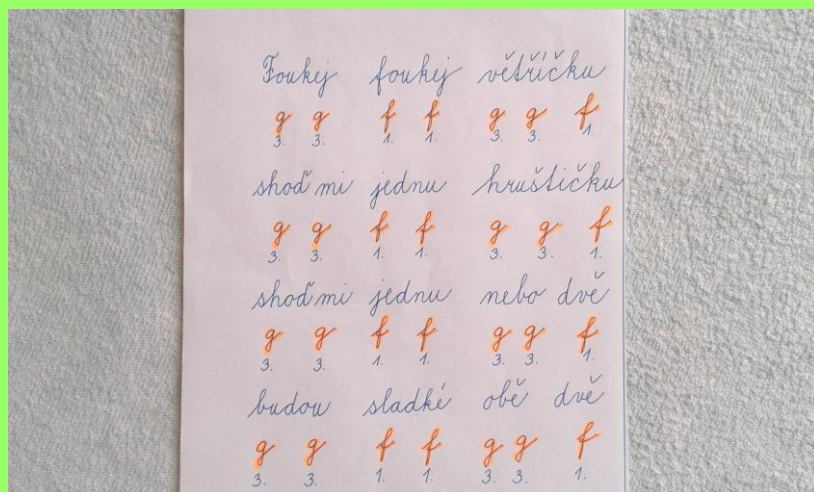 Foukej foukej větříčku
g g f f g g f
3. 3. 1. 1. 3. 3. 1.
shoď mi jednu hruštičku
g g f f g g f
3. 3. 1. 1. 3. 3. 1.
shoď mi jednu nebo dvě
g g f f g g f
3. 3. 1. 1. 3. 3. 1.
budou sladké obě dvě
g g f f g g f
3. 3. 1. 1. 3. 3. 1.